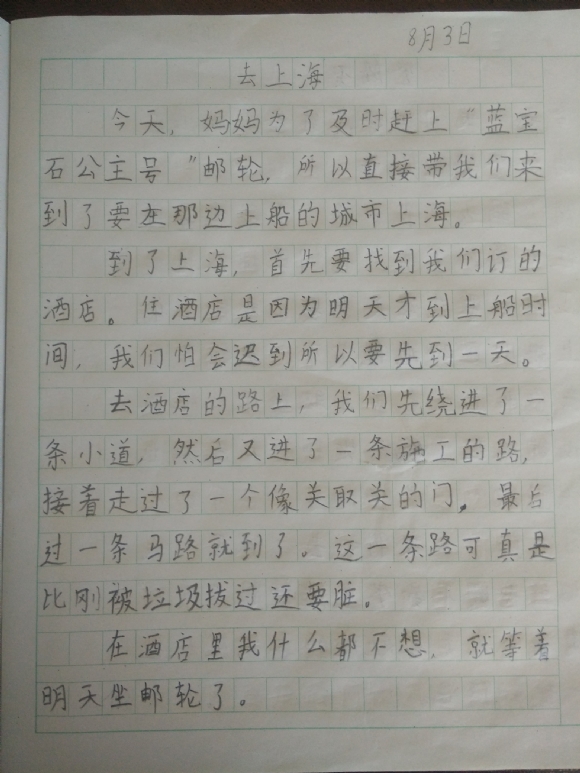 8月3日
去上海
今天，妈妈为了及时赶上“蓝宝
石公主号”邮轮，所以直接带我们来
到了要在那边上船的城市上海。
到了上海，首先要找到我们订的
酒店。住酒店是因为明天才到上船时
间，我们怕会迟到所以要先到一天。
去酒店的路上，我们先绕进了一
条小道，然后又进了一条施工的路，
接着走过了一个像关取关的门，最后
过一条马路就到了。这一条路可真是
比刚被垃圾拔过还要脏。
在酒店里我什么都不想，就等着
明天坐邮轮了。